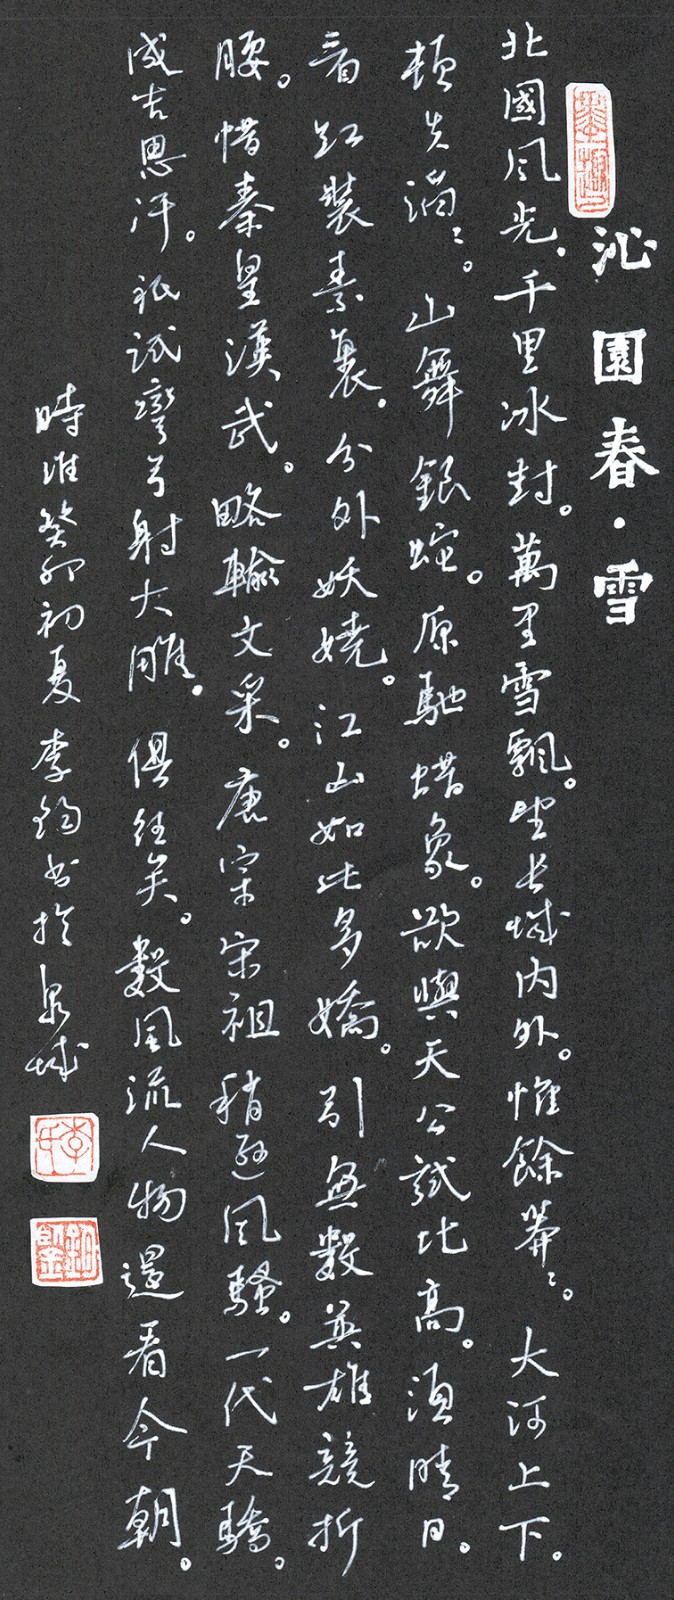 沁園春·雪
北國風光，千里冰封。萬里雪飄。望长城内外。惟餘莽〻。大河上下。
頓失滔〻。山舞銀蛇。原馳蜡象。欲與天公試比高。須晴日。
看红裝素裹，分外妖嬈。江山如此多嬌。引無數英雄競折
腰。惜秦皇漢武。略輸文采。唐宗宋祖稍遜風騷。一代天驕。
成吉思汗。祇識彎弓射大雕。俱往矣。數風流人物還看今朝。
時維癸卯初夏李鈞书於泉城